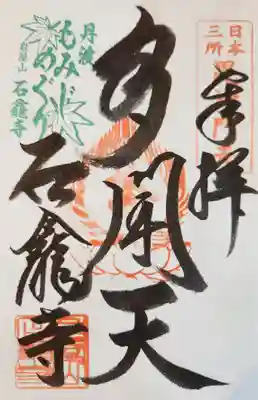 奉拝
日本
三所
多聞天
丹波
もみじ
めぐり
岩屋山
石龕寺
石龕寺